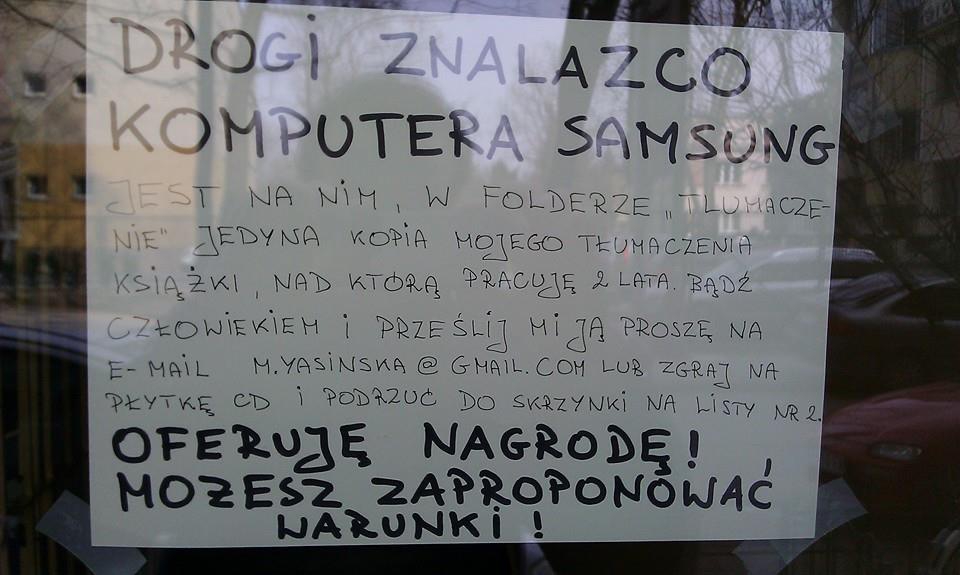 DROGI ZNALAZCO
KOMPUTERA SAMSUNG
JEST NA NIM, W FOLDERZE „TLUMACZE-
NIE" JEDYNA KOPIA MOJEGO TŁUMACZENIA
KSIĄŻKI, NAD KTÓRĄ PRACUJĘ 2 LATA. BĄDŹ
CZŁOWIEKIEM I PRZEŚLIJ MI JĄ PROSZĘ NA
E-MAIL M.YASINSKA@GMAIL.COM LUB ZGRAJ NA
PŁYTKĘ CD I PODRZUĆ DO SKRZYNKI NA LISTY NR 2.
OFERUJĘ NAGRODĘ!
MOŻESZ ZAPROPONOWAĆ
WARUNKI!